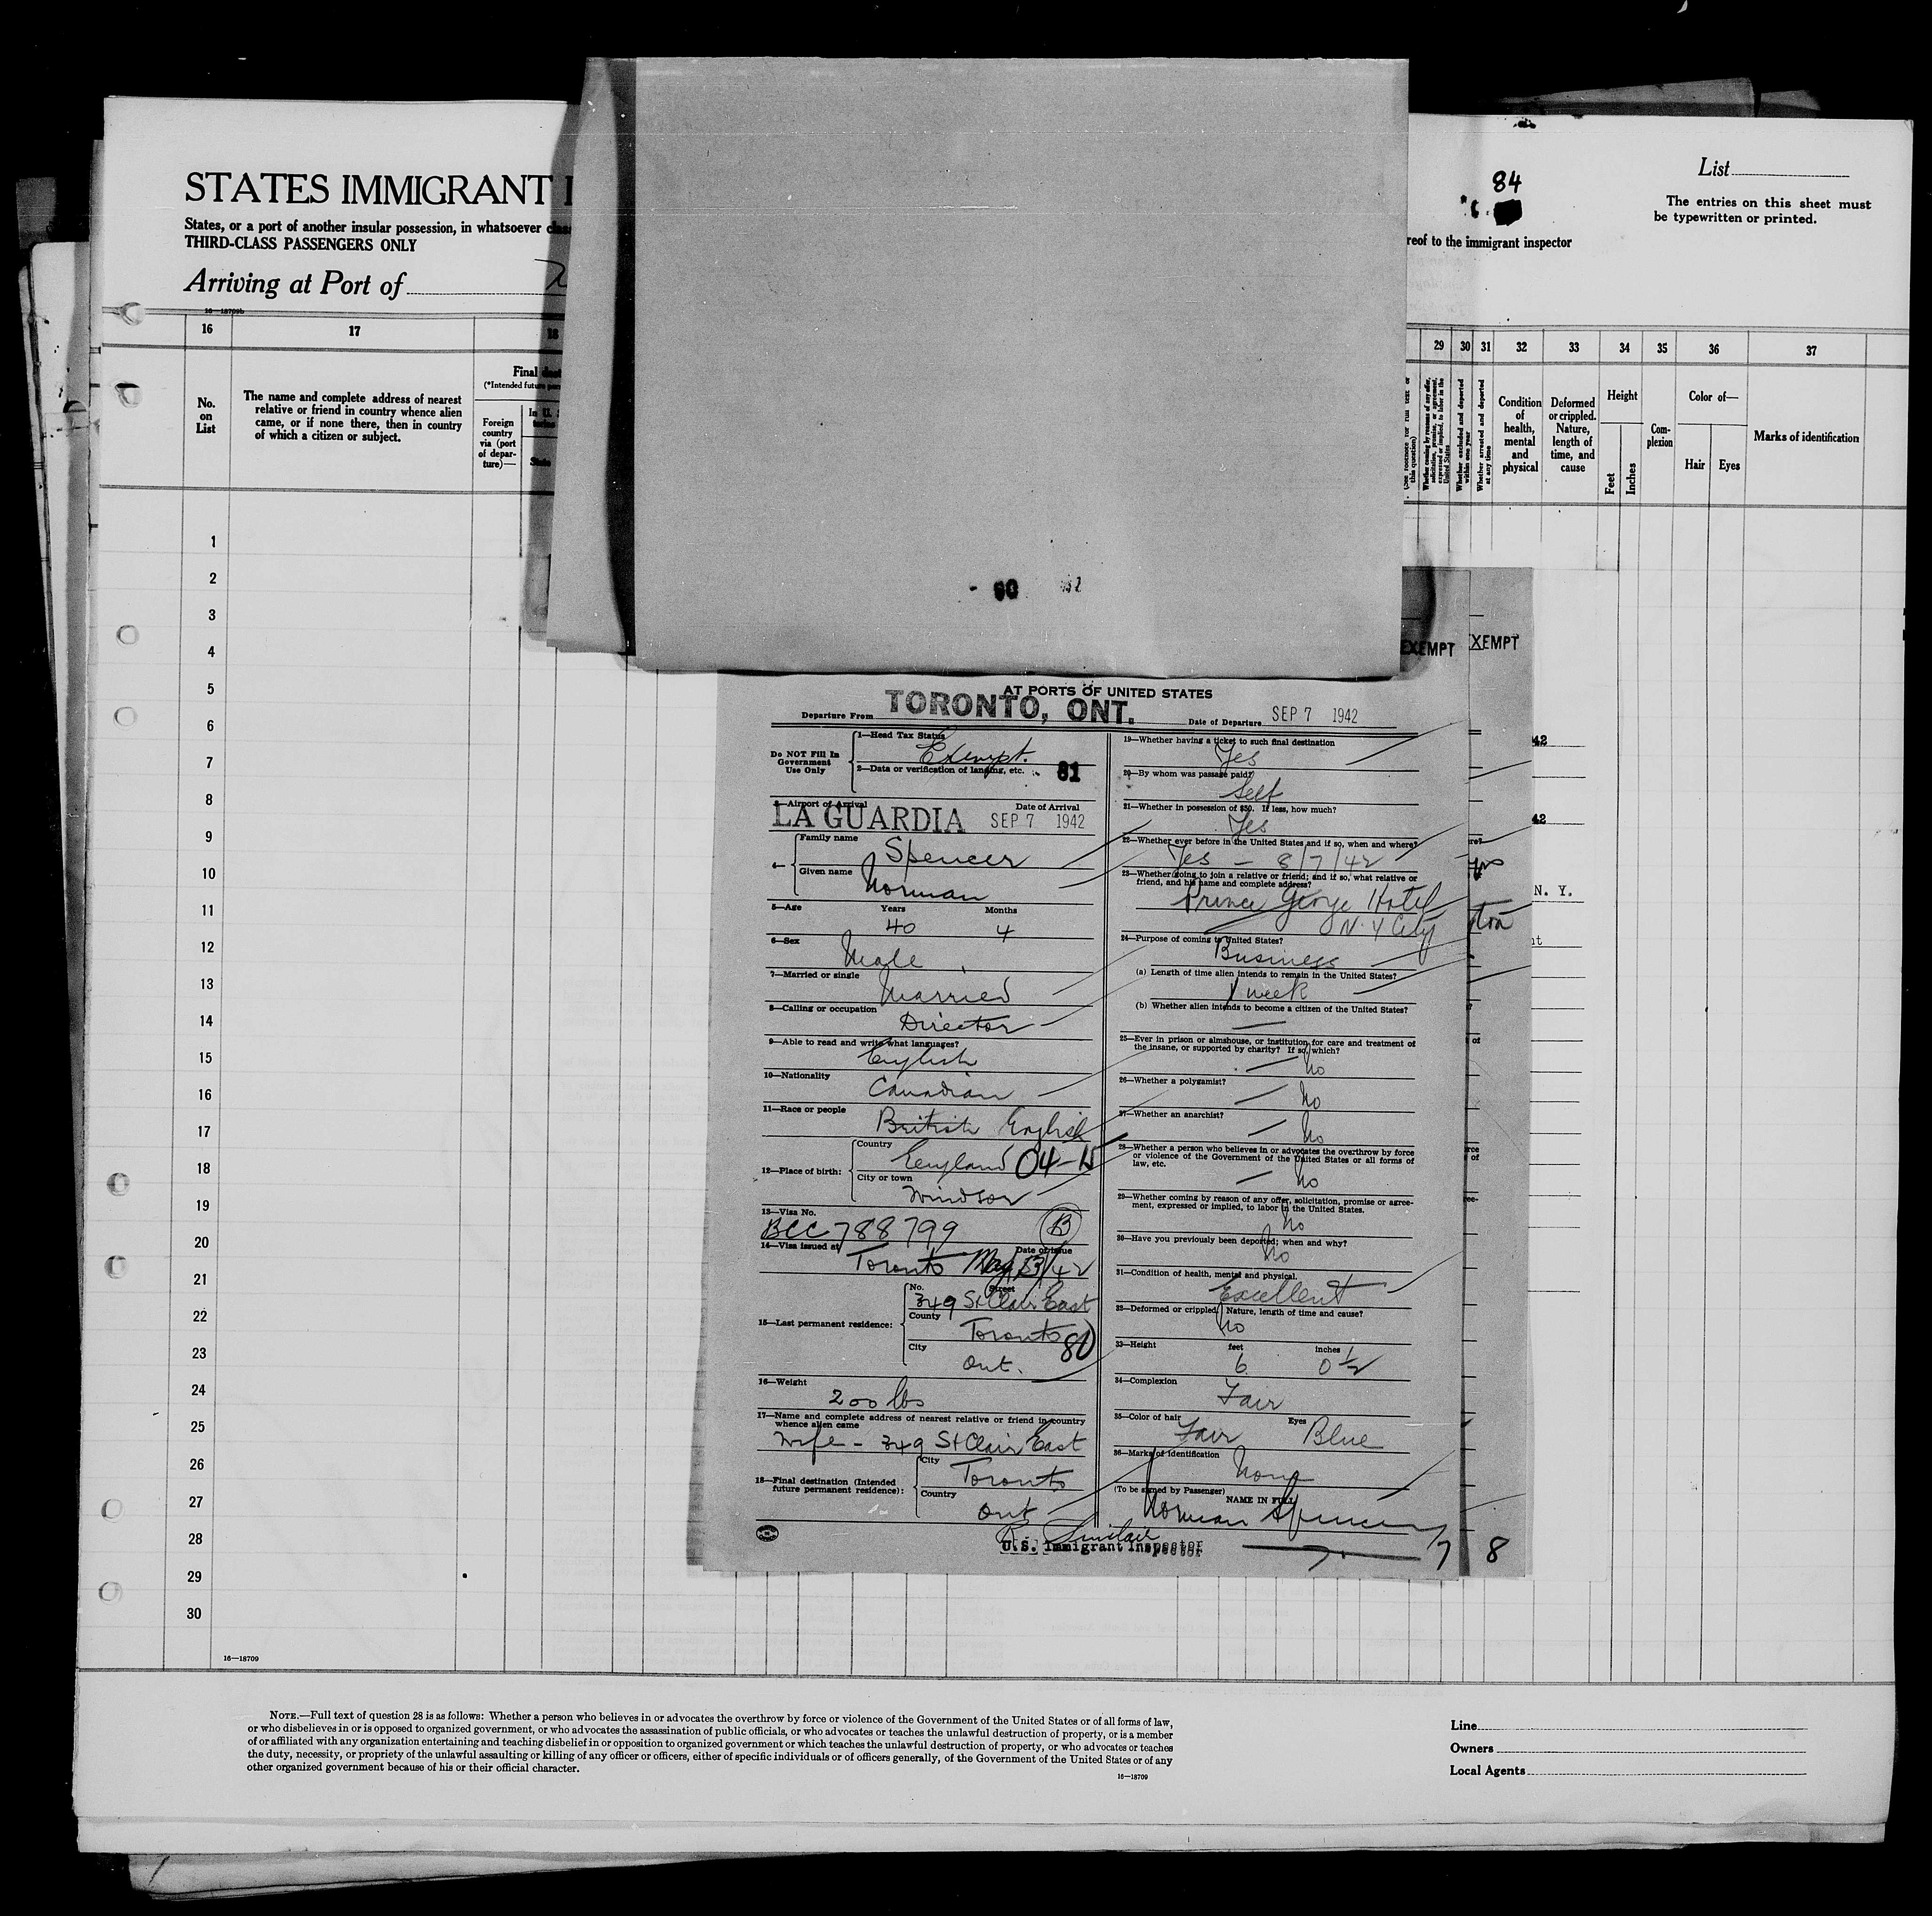 STATES IMMIGRANT
States, or a port of another insular possession, in whatsoever
THIRD-CLASS PASSENGERS ONLY
Arriving at Port of
84
List
The entries on this sheet must
be typewritten or printed.
reof to the immigrant inspector
16—18709b
16 17 18
29 30 31 32 33 34 35 36 37
No.
on
List
The name and complete address of nearest
relative or friend in country whence alien
came, or if none there, then in country
of which a citizen or subject.
Final
(*Intended future
Foreign
country
via (port
of depar-
ture)—
State
this question)
Whether coming by reason of any offer,
solicitation, promise, or agreement,
expressed or implied, to labor in the
United States
Whether excluded and deported
within one year
Whether arrested and deported
at any time
Condition
of
health,
mental
and
physical
Deformed
or crippled.
Nature,
length of
time, and
cause
Height
Feet
Inches
Com-
plexion
Color of—
Hair
Eyes
Marks of identification
1
2
3
4
5
6
7
8
9
10
11
12
13
14
15
16
17
18
19
20
21
22
23
24
25
26
27
28
29
30
16—18709
90
EXEMPT
XEMPT
AT PORTS OF UNITED STATES
Departure From TORONTO, ONT. Date of Departure SEP 7 1942
Do NOT Fill In
Government
Use Only
1—Head Tax Status
Exempt.
2—Data or verification of landing, etc. 81
3—Airport of Arrival Date of Arrival
LA GUARDIA SEP 7 1942
4—
Family name
Spencer
Given name
Norman
5—Age Years Months
40 4
6—Sex
Male
7—Married or single
Married
8—Calling or occupation
Director
9—Able to read and write what languages?
English
10—Nationality
Canadian
11—Race or people
British English
12—Place of birth:
Country
England
City or town
Windsor
13—Visa No.
BCC 788799 B
14—Visa issued at Date of issue
Toronto May 13/42
15—Last permanent residence:
No. Street
349 St Clair East
County
Toronto
City
Ont.
80
16—Weight
200 lbs
17—Name and complete address of nearest relative or friend in country
whence alien came
Wife - 349 St Clair East
18—Final destination (Intended
future permanent residence):
City
Toronto
Country
Ont
19—Whether having a ticket to such final destination
Yes
20—By whom was passage paid?
Self
21—Whether in possession of $50. If less, how much?
Yes
22—Whether ever before in the United States and if so, when and where?
Yes — 8/7/42
23—Whether going to join a relative or friend; and if so, what relative or
friend, and his name and complete address?
Prince George Hotel
N.Y City
24—Purpose of coming to United States?
Business
(a) Length of time alien intends to remain in the United States?
1 week
(b) Whether alien intends to become a citizen of the United States?
—
25—Ever in prison or almshouse, or institution for care and treatment of
the insane, or supported by charity? If so, which?
No
26—Whether a polygamist?
No
27—Whether an anarchist?
No
28—Whether a person who believes in or advocates the overthrow by force
or violence of the Government of the United States or all forms of
law, etc.
No
29—Whether coming by reason of any offer, solicitation, promise or agree-
ment, expressed or implied, to labor in the United States.
No
30—Have you previously been deported; when and why?
No
31—Condition of health, mental and physical.
Excellent
32—Deformed or crippled. Nature, length of time and cause?
No
33—Height feet inches
6 0 1/2
34—Complexion
Fair
35—Color of hair Eyes
Fair Blue
36—Marks of identification
None
(To be signed by Passenger) NAME IN FULL
Norman Spencer
R. Sinclair
U.S. Immigrant Inspector
7 8
42
42
N. Y.
NOTE.—Full text of question 28 is as follows: Whether a person who believes in or advocates the overthrow by force or violence of the Government of the United States or of all forms of law,
or who disbelieves in or is opposed to organized government, or who advocates the assassination of public officials, or who advocates or teaches the unlawful destruction of property, or is a member
of or affiliated with any organization entertaining and teaching disbelief in or opposition to organized government or which teaches the unlawful destruction of property, or who advocates or teaches
the duty, necessity, or propriety of the unlawful assaulting or killing of any officer or officers, either of specific individuals or of officers generally, of the Government of the United States or of any
other organized government because of his or their official character.
16—18709
Line
Owners
Local Agents